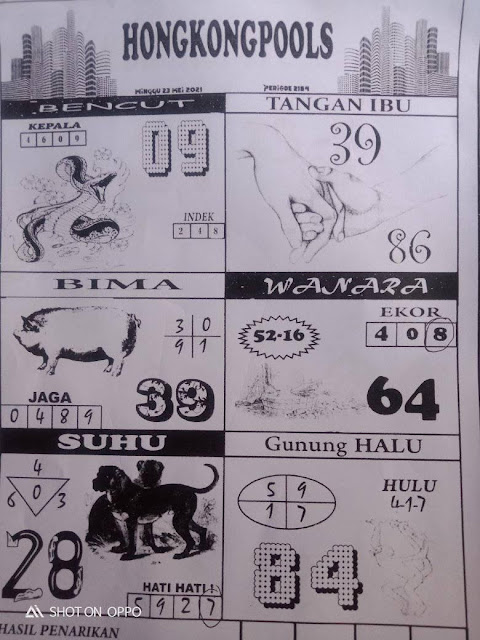 HONGKONGPOOLS
MINGGU 23 MEI 2021
PERIODE 2184
BENCUT
KEPALA
4 6 0 9
09
INDEK
2 4 8
TANGAN IBU
39
86
BIMA
3 0
9 1
JAGA
0 4 8 9
39
WANARA
EKOR
52-16
4 0 8
64
SUHU
4
6 0 3
28
HATI HATI!
5 9 2 7
Gunung HALU
5 9
1 7
HULU
4-1-7
84
SHOT ON OPPO
HASIL PENARIKAN